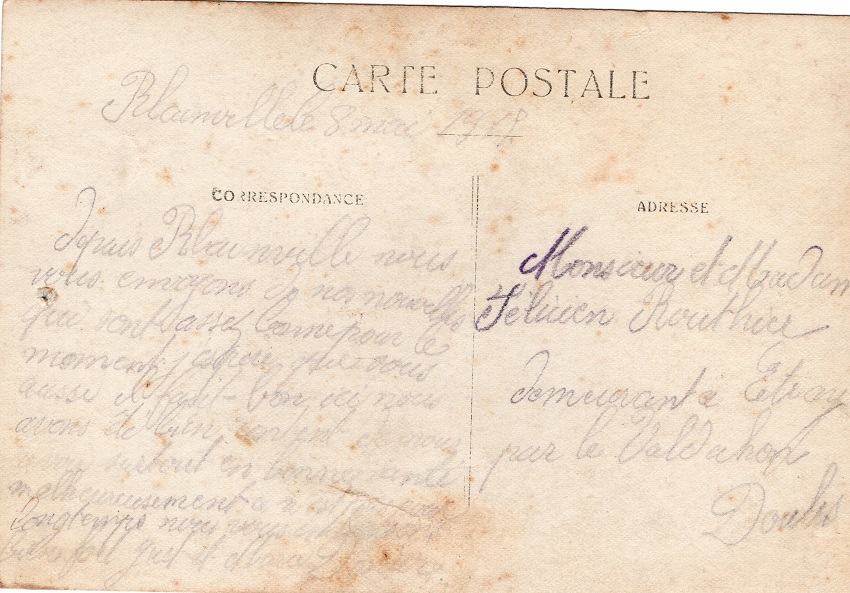 CARTE POSTALE
Blainville le 8 mai 191
CORRESPONDANCE
depuis Blainville nous
vous envoyons nos nouvelles
qui sont assez bonne pour le
moment j'espère que vous
aussi il fait bon ici nous
avons de bien content de nous
surtout en bonne santé
malheureusement
longtemps nous vous
bien fort
ADRESSE
Monsieur et Madam
Félicien Routhier
demeurant à Etray
par le Valdahon
Doubs